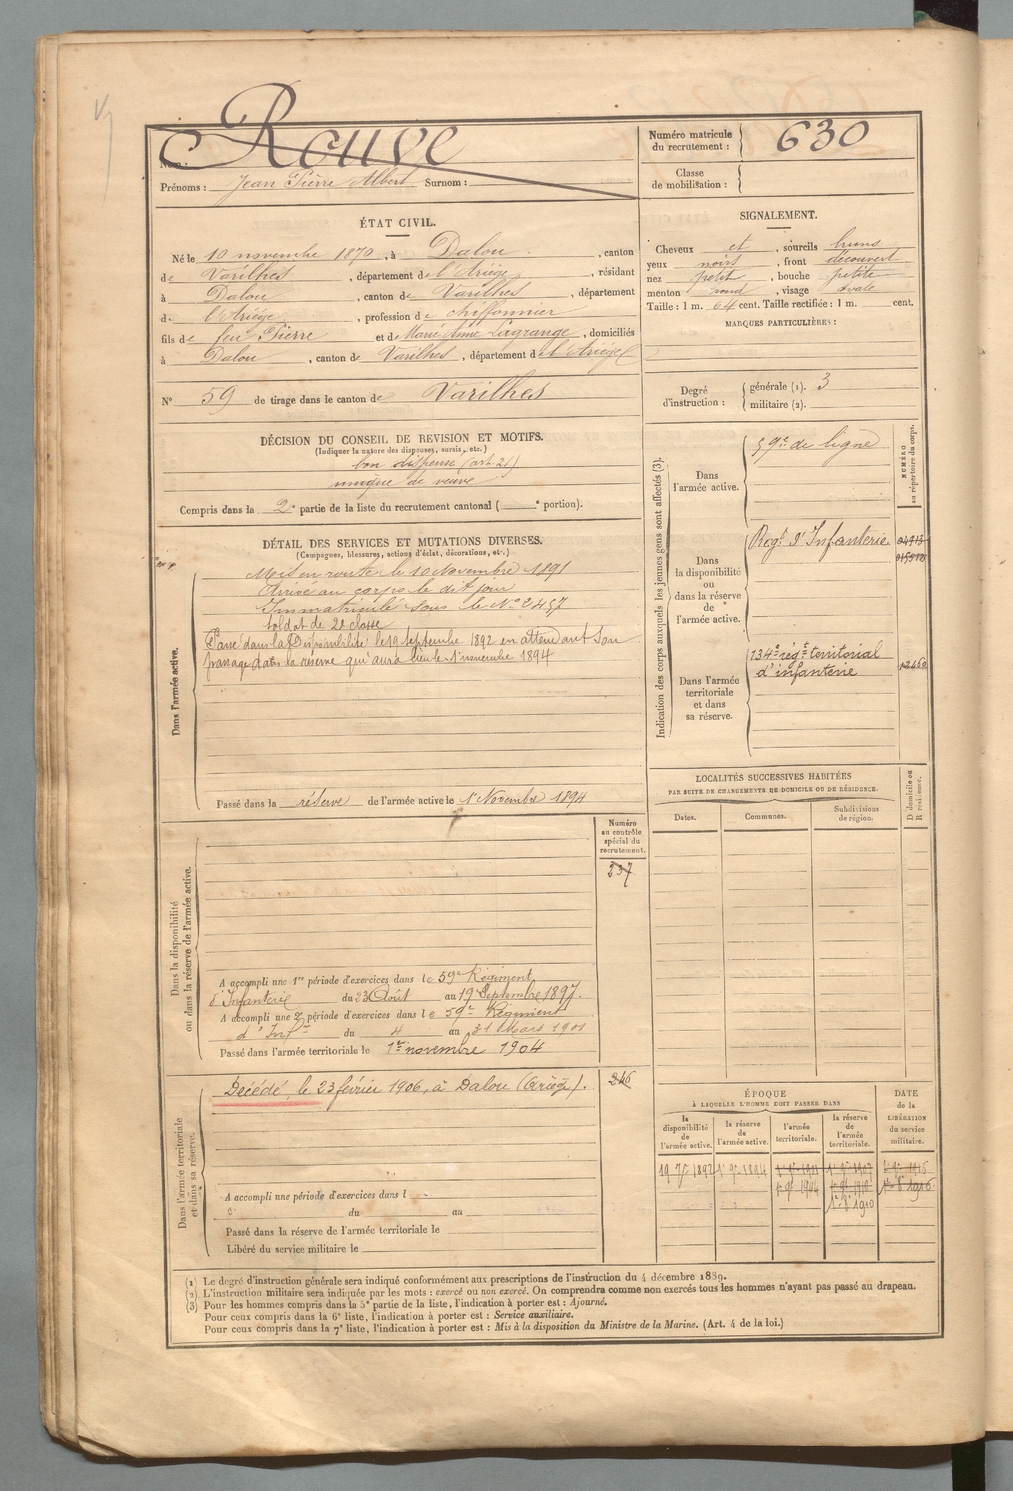 Rouve
Nom :
Prénoms : Jean Pierre Albert Surnom :
Numéro matricule
du recrutement : 630
Classe
de mobilisation :
ÉTAT CIVIL.
Né le 10 novembre 1870, à Dalou, canton
de Varilhes, département de l'Ariège, résidant
à Dalou, canton de Varilhes, département
d l'Ariège, profession de chiffonnier
fils de feu Pierre et de Marie Anne Lagrange, domiciliés
à Dalou, canton de Varilhes, département de l'Ariège
N° 59 de tirage dans le canton de Varilhes
SIGNALEMENT.
Cheveux et, sourcils bruns
yeux noirs, front découvert
nez petit, bouche petite
menton rond, visage ovale
Taille : 1 m. 64 cent. Taille rectifiée : 1 m. cent.
MARQUES PARTICULIÈRES :
Degré
d'instruction :
générale (1). 3
militaire (2).
DÉCISION DU CONSEIL DE REVISION ET MOTIFS.
(Indiquer la nature des dispenses, sursis, etc.)
bon dispensé (art. 21)
unique de veuve
Compris dans la 2e partie de la liste du recrutement cantonal ( e portion).
DÉTAIL DES SERVICES ET MUTATIONS DIVERSES.
(Campagnes, blessures, actions d'éclat, décorations, etc.)
Dans l'armée active.
Mis en route le 10 Novembre 1891
Arrivé au corps le dit jour
Immatriculé sous le N° 2457
soldat de 2e classe
Passé dans la Disponibilité le 19 Septembre 1892 en attendant son
passage dans la réserve qui aura lieu le 1er novembre 1894
Passé dans la réserve de l'armée active le 1er Novembre 1894
Indication des corps auxquels les jeunes gens sont affectés (3).
NUMÉRO
au répertoire du corps.
Dans
l'armée active.
59e de ligne
Dans
la disponibilité
ou
dans la réserve
de
l'armée active.
Regt d'Infanterie
Dans l'armée
territoriale
et dans
sa réserve.
134e regt territorial
d'infanterie
12460
LOCALITÉS SUCCESSIVES HABITÉES
PAR SUITE DE CHANGEMENTS DE DOMICILE OU DE RÉSIDENCE.
Dates.
Communes.
Subdivisions
de région.
D domicile ou
R résidence.
Numéro
au contrôle
spécial du
recrutement.
237
Dans la disponibilité
ou dans la réserve de l'armée active.
A accompli une 1re période d'exercices dans le 59e Régiment
d'Infanterie du 23 Août au 19 Septembre 1897.
A accompli une 2e période d'exercices dans le 59e Régiment
d'Infrie du 4 au 31 Mars 1901
Passé dans l'armée territoriale le 1er novembre 1904
Dans l'armée territoriale
et dans sa réserve.
Décédé le 23 février 1906, à Dalou (Ariège).
246
A accompli une période d'exercices dans l
du au
Passé dans la réserve de l'armée territoriale le
Libéré du service militaire le
ÉPOQUE
À LAQUELLE L'HOMME DOIT PASSER DANS
la
disponibilité
de
l'armée active.
la réserve
de
l'armée active.
l'armée
territoriale.
la réserve
de
l'armée
territoriale.
DATE
de la
LIBÉRATION
du service
militaire.
19 7re 1892
1er 9re 1894
1er 9re 1904
1er 8re 1910
1er 8re 1916
(1) Le degré d'instruction générale sera indiqué conformément aux prescriptions de l'instruction du 4 décembre 1889.
(2) L'instruction militaire sera indiquée par les mots : exercé ou non exercé. On comprendra comme non exercés tous les hommes n'ayant pas passé au drapeau.
(3) Pour les hommes compris dans la 5e partie de la liste, l'indication à porter est : Ajourné.
Pour ceux compris dans la 6e liste, l'indication à porter est : Service auxiliaire.
Pour ceux compris dans la 7e liste, l'indication à porter est : Mis à la disposition du Ministre de la Marine. (Art. 4 de la loi.)